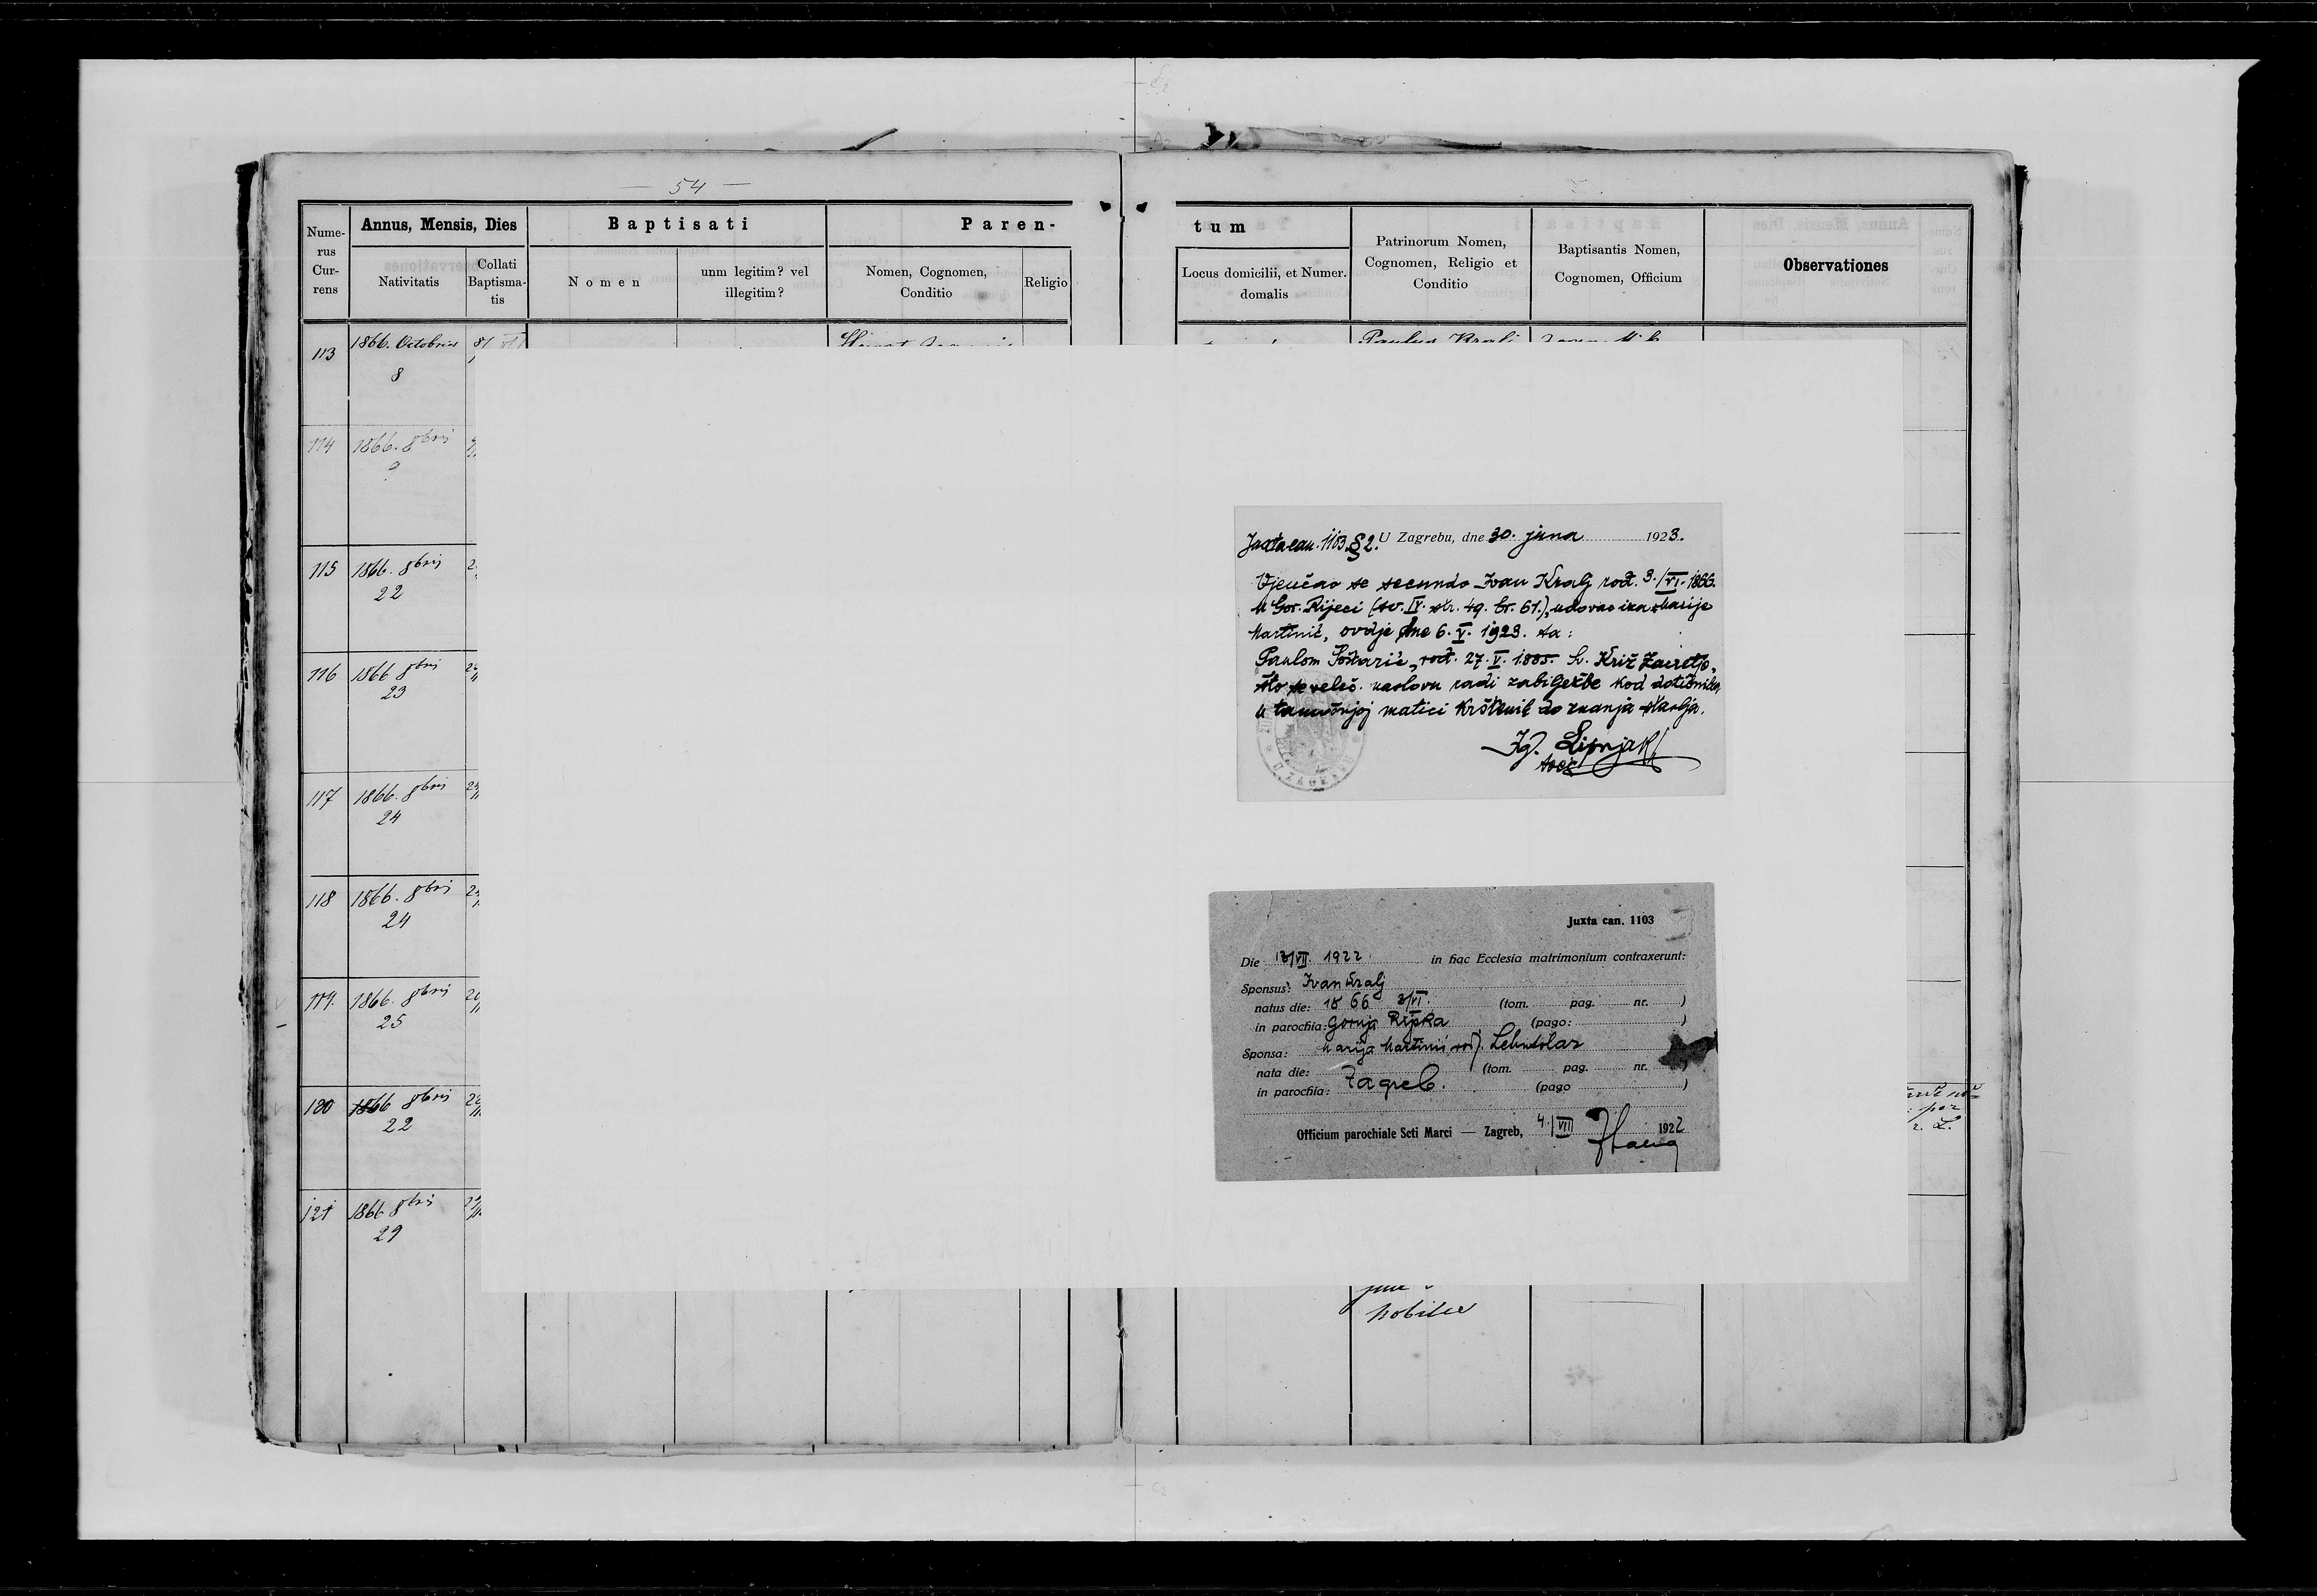 — 54 —
Nume-
rus
Cur-
rens
Annus, Mensis, Dies
Nativitatis
Collati
Baptisma-
tis
Baptisati
Nomen
unm legitim? vel
illegitim?
Paren-
Nomen, Cognomen,
Conditio
Religio
tum
Locus domicilii, et Numer.
domalis
Patrinorum Nomen,
Cognomen, Religio et
Conditio
Baptisantis Nomen,
Cognomen, Officium
Observationes
113 1866. Octobris
8
Paulus Kralj
114 1866. 8bris
9
115 1866. 8bris
22
116 1866 8bris
23
117 1866. 8bris
24
118 1866. 8bris
24
119. 1866. 8bris
25
120 1866 8bris
22
121 1866 8bris
29
nobiles
Juxta can. 1103 § 2. U Zagrebu, dne 30. juna 1923.
Vjenčao se secundo Ivan Kralj rođ. 3./VI. 1866.
u Gor. Rijeci (sv. IV. str. 49. br. 61.), udovac iza Marije
Martinić, ovdje dne 6. V. 1923. sa:
Paulom Šoštarić, rođ. 27. V. 1885. Sv. Križ Začretje,
što se veleč. naslovu radi zabilježbe kod dotičnika
u tamošnjoj matici krštenih do znanja stavlja.
Ig. Lipnjak
U ZAGREBU
Juxta can. 1103
Die 13/VII. 1922. in hac Ecclesia matrimonium contraxerunt:
Sponsus: Ivan Kralj
natus die: 1866 3/VI. (tom. pag. nr. )
in parochia: Gornja Rijeka (pago: )
Sponsa: Marija Martinić rođ.
nata die: (tom. pag. nr. )
in parochia: Zagreb. (pago )
Officium parochiale Scti Marci — Zagreb, 4./VIII 1922